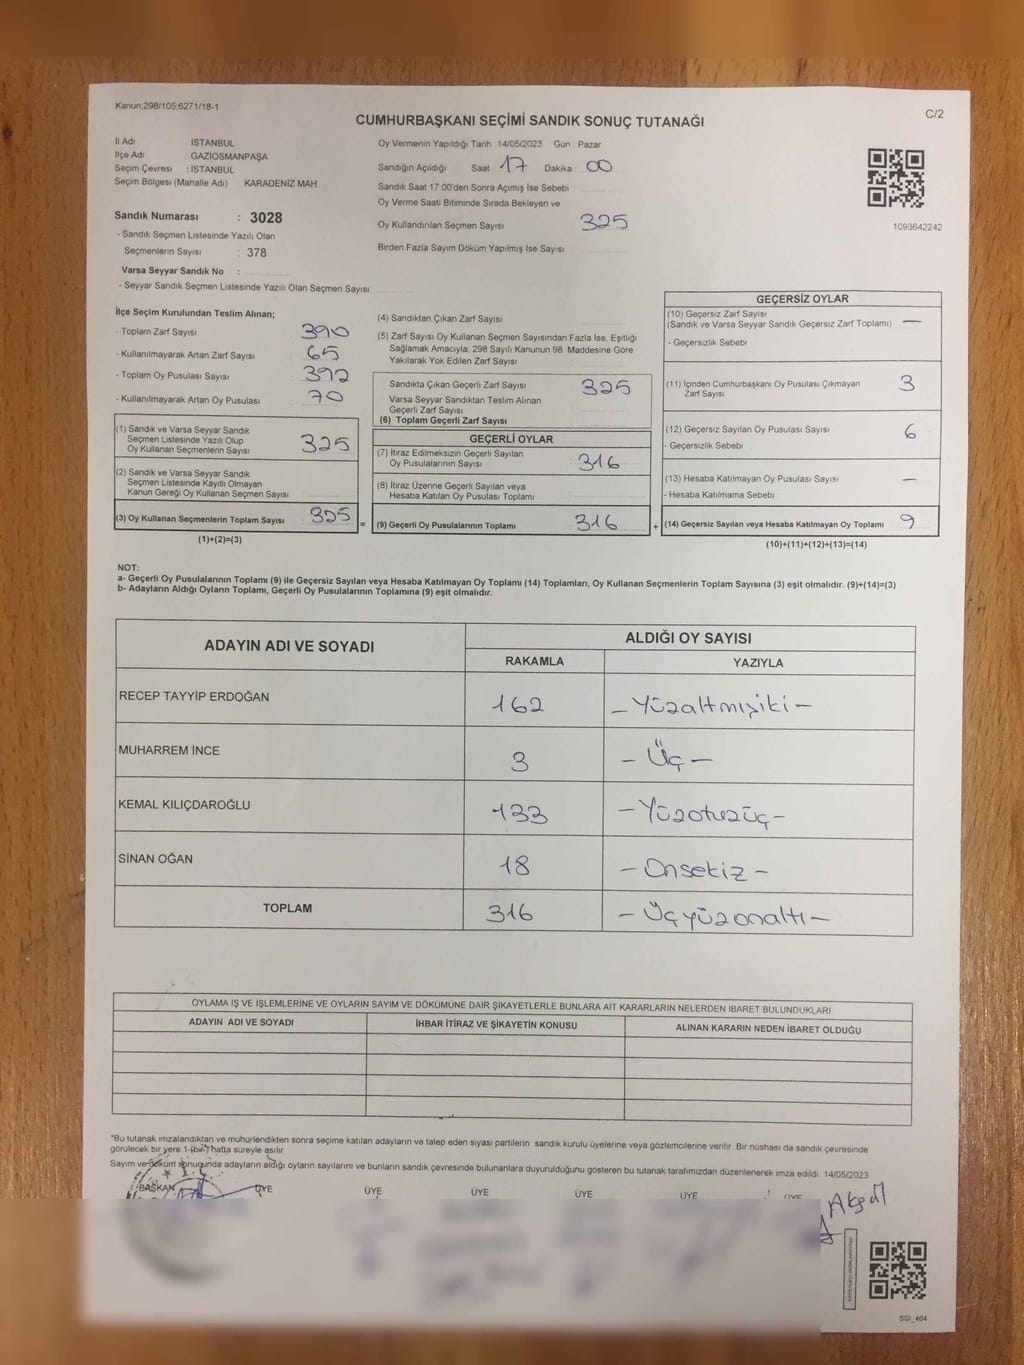 Kanun;298/105;6271/18-1
C/2
CUMHURBAŞKANI SEÇİMİ SANDIK SONUÇ TUTANAĞI
İl Adı : İSTANBUL
İlçe Adı GAZİOSMANPAŞA
Seçim Çevresi : İSTANBUL
Seçim Bölgesi (Mahalle Adı) KARADENİZ MAH.
Sandık Numarası : 3028
- Sandık Seçmen Listesinde Yazılı Olan
Seçmenlerin Sayısı : 378
Varsa Seyyar Sandık No :
- Seyyar Sandık Seçmen Listesinde Yazılı Olan Seçmen Sayısı:
Oy Vermenin Yapıldığı Tarih 14/05/2023 Gün : Pazar
Sandığın Açıldığı Saat 17 Dakika 00
Sandık Saat 17:00'den Sonra Açımış İse Sebebi
Oy Verme Saati Bitiminde Sırada Bekleyen ve
Oy Kullandırılan Seçmen Sayısı 325
Birden Fazla Sayım Döküm Yapılmış İse Sayısı
1093642242
İlçe Seçim Kurulundan Teslim Alınan;
- Toplam Zarf Sayısı 390
- Kullanılmayarak Artan Zarf Sayısı 65
- Toplam Oy Pusulası Sayısı 392
- Kullanılmayarak Artan Oy Pusulası 70
(1) Sandık ve Varsa Seyyar Sandık
Seçmen Listesinde Yazılı Olup
Oy Kullanan Seçmenlerin Sayısı 325
(2) Sandık ve Varsa Seyyar Sandık
Seçmen Listesinde Kayıtlı Olmayan
Kanun Gereği Oy Kullanan Seçmen Sayısı
(3) Oy Kullanan Seçmenlerin Toplam Sayısı 325
(1)+(2)=(3)
=
(4) Sandıktan Çıkan Zarf Sayısı
(5) Zarf Sayısı Oy Kullanan Seçmen Sayısından Fazla İse, Eşitliği
Sağlamak Amacıyla; 298 Sayılı Kanunun 98. Maddesine Göre
Yakılarak Yok Edilen Zarf Sayısı
Sandıkta Çıkan Geçerli Zarf Sayısı 325
Varsa Seyyar Sandıktan Teslim Alınan
Geçerli Zarf Sayısı
(6) Toplam Geçerli Zarf Sayısı
GEÇERLİ OYLAR
(7) İtiraz Edilmeksizin Geçerli Sayılan
Oy Pusulalarının Sayısı 316
(8) İtiraz Üzerine Geçerli Sayılan veya
Hesaba Katılan Oy Pusulası Toplamı
(9) Geçerli Oy Pusulalarının Toplamı 316
+
GEÇERSİZ OYLAR
(10) Geçersiz Zarf Sayısı
(Sandık ve Varsa Seyyar Sandık Geçersiz Zarf Toplamı) —
- Geçersizlik Sebebi
(11) İçinden Cumhurbaşkanı Oy Pusulası Çıkmayan
Zarf Sayısı 3
(12) Geçersiz Sayılan Oy Pusulası Sayısı 6
- Geçersizlik Sebebi
(13) Hesaba Katılmayan Oy Pusulası Sayısı —
- Hesaba Katılmama Sebebi
(14) Geçersiz Sayılan veya Hesaba Katılmayan Oy Toplamı 9
(10)+(11)+(12)+(13)=(14)
NOT:
a- Geçerli Oy Pusulalarının Toplamı (9) ile Geçersiz Sayılan veya Hesaba Katılmayan Oy Toplamı (14) Toplamları, Oy Kullanan Seçmenlerin Toplam Sayısına (3) eşit olmalıdır. (9)+(14)=(3)
b- Adayların Aldığı Oyların Toplamı, Geçerli Oy Pusulalarının Toplamına (9) eşit olmalıdır.
ADAYIN ADI VE SOYADI ALDIĞI OY SAYISI
RAKAMLA YAZIYLA
RECEP TAYYİP ERDOĞAN 162 – Yüzaltmışiki –
MUHARREM İNCE 3 – Üç –
KEMAL KILIÇDAROĞLU 133 – Yüzotuzüç –
SİNAN OĞAN 18 – Onsekiz –
TOPLAM 316 – Üçyüzonaltı –
OYLAMA İŞ VE İŞLEMLERİNE VE OYLARIN SAYIM VE DÖKÜMÜNE DAİR ŞİKAYETLERLE BUNLARA AİT KARARLARIN NELERDEN İBARET BULUNDUKLARI
ADAYIN ADI VE SOYADI İHBAR İTİRAZ VE ŞİKAYETİN KONUSU ALINAN KARARIN NEDEN İBARET OLDUĞU
*Bu tutanak imzalandıktan ve mühürlendikten sonra seçime katılan adayların ve talep eden siyasi partilerin sandık kurulu üyelerine veya gözlemcilerine verilir. Bir nüshası da sandık çevresinde
görülecek bir yere 1-(bir) hafta süreyle asılır
Sayım ve döküm sonucunda adayların aldığı oyların sayılarını ve bunların sandık çevresinde bulunanlara duyurulduğunu gösteren bu tutanak tarafımızdan düzenlenerek imza edildi. 14/05/2023
BAŞKAN ÜYE ÜYE ÜYE ÜYE ÜYE ÜYE
Akgül
SSI_404